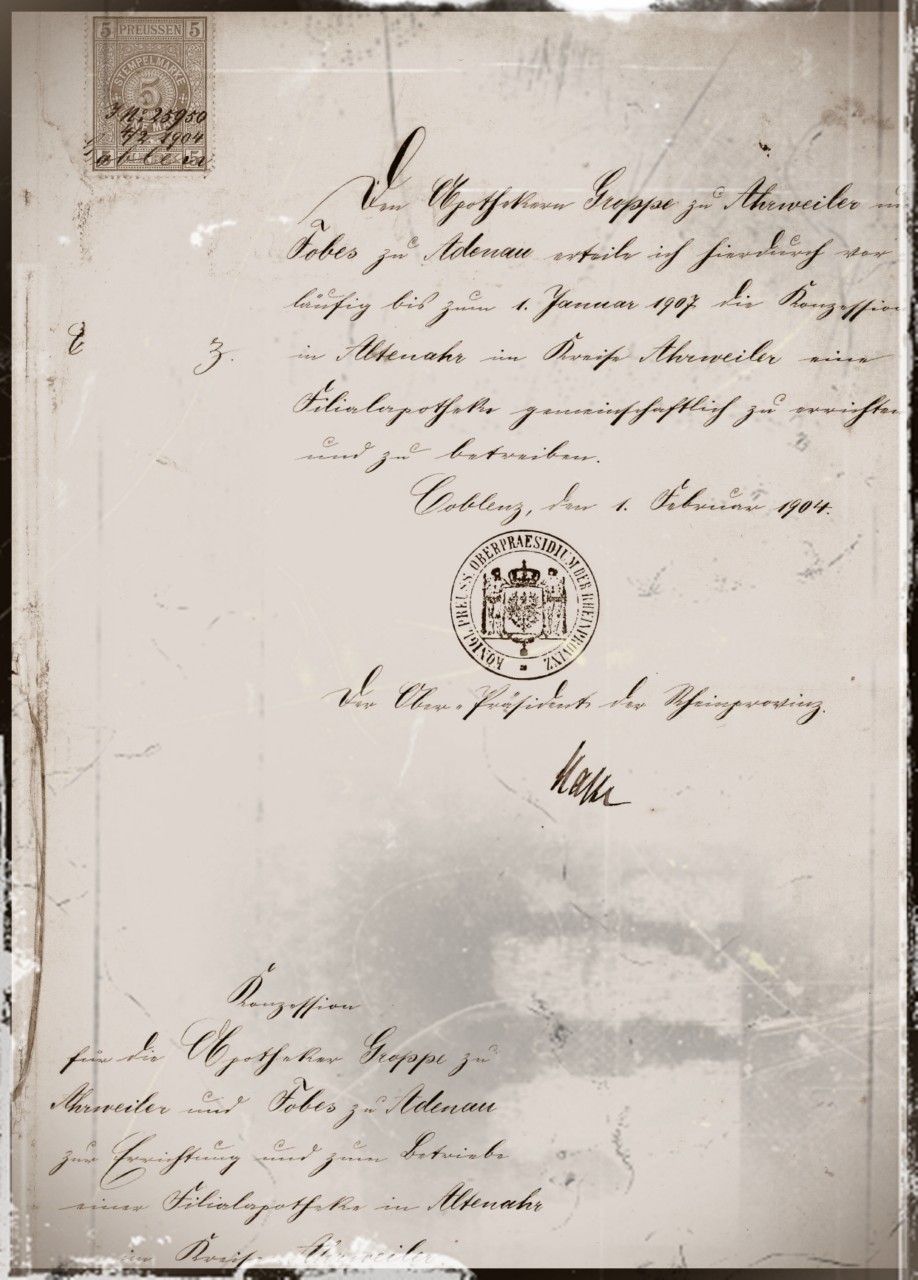 5 PREUSSEN 5
STEMPELMARKE
5
J.N: 25950
4/2 1904
5
Den Apothekern Groppe zu Ahrweiler
Fobes zu Adenau erteile ich hierdurch vor
läufig bis zum 1. Januar 1907 die Konzession
in Altenahr im Kreise Ahrweiler eine
Filialapotheke gemeinschaftlich zu errichten
und zu betreiben.
Coblenz, den 1. Februar 1904.
KÖNIGL. PREUSS. OBERPRAESIDIUM DER RHEINPROVINZ
Der Ober-Präsident der Rheinprovinz.
Konzession
für die Apotheker Groppe zu
Ahrweiler und Fobes zu Adenau
zur Errichtung und zum Betriebe
einer Filialapotheke in Altenahr
im Kreise Ahrweiler